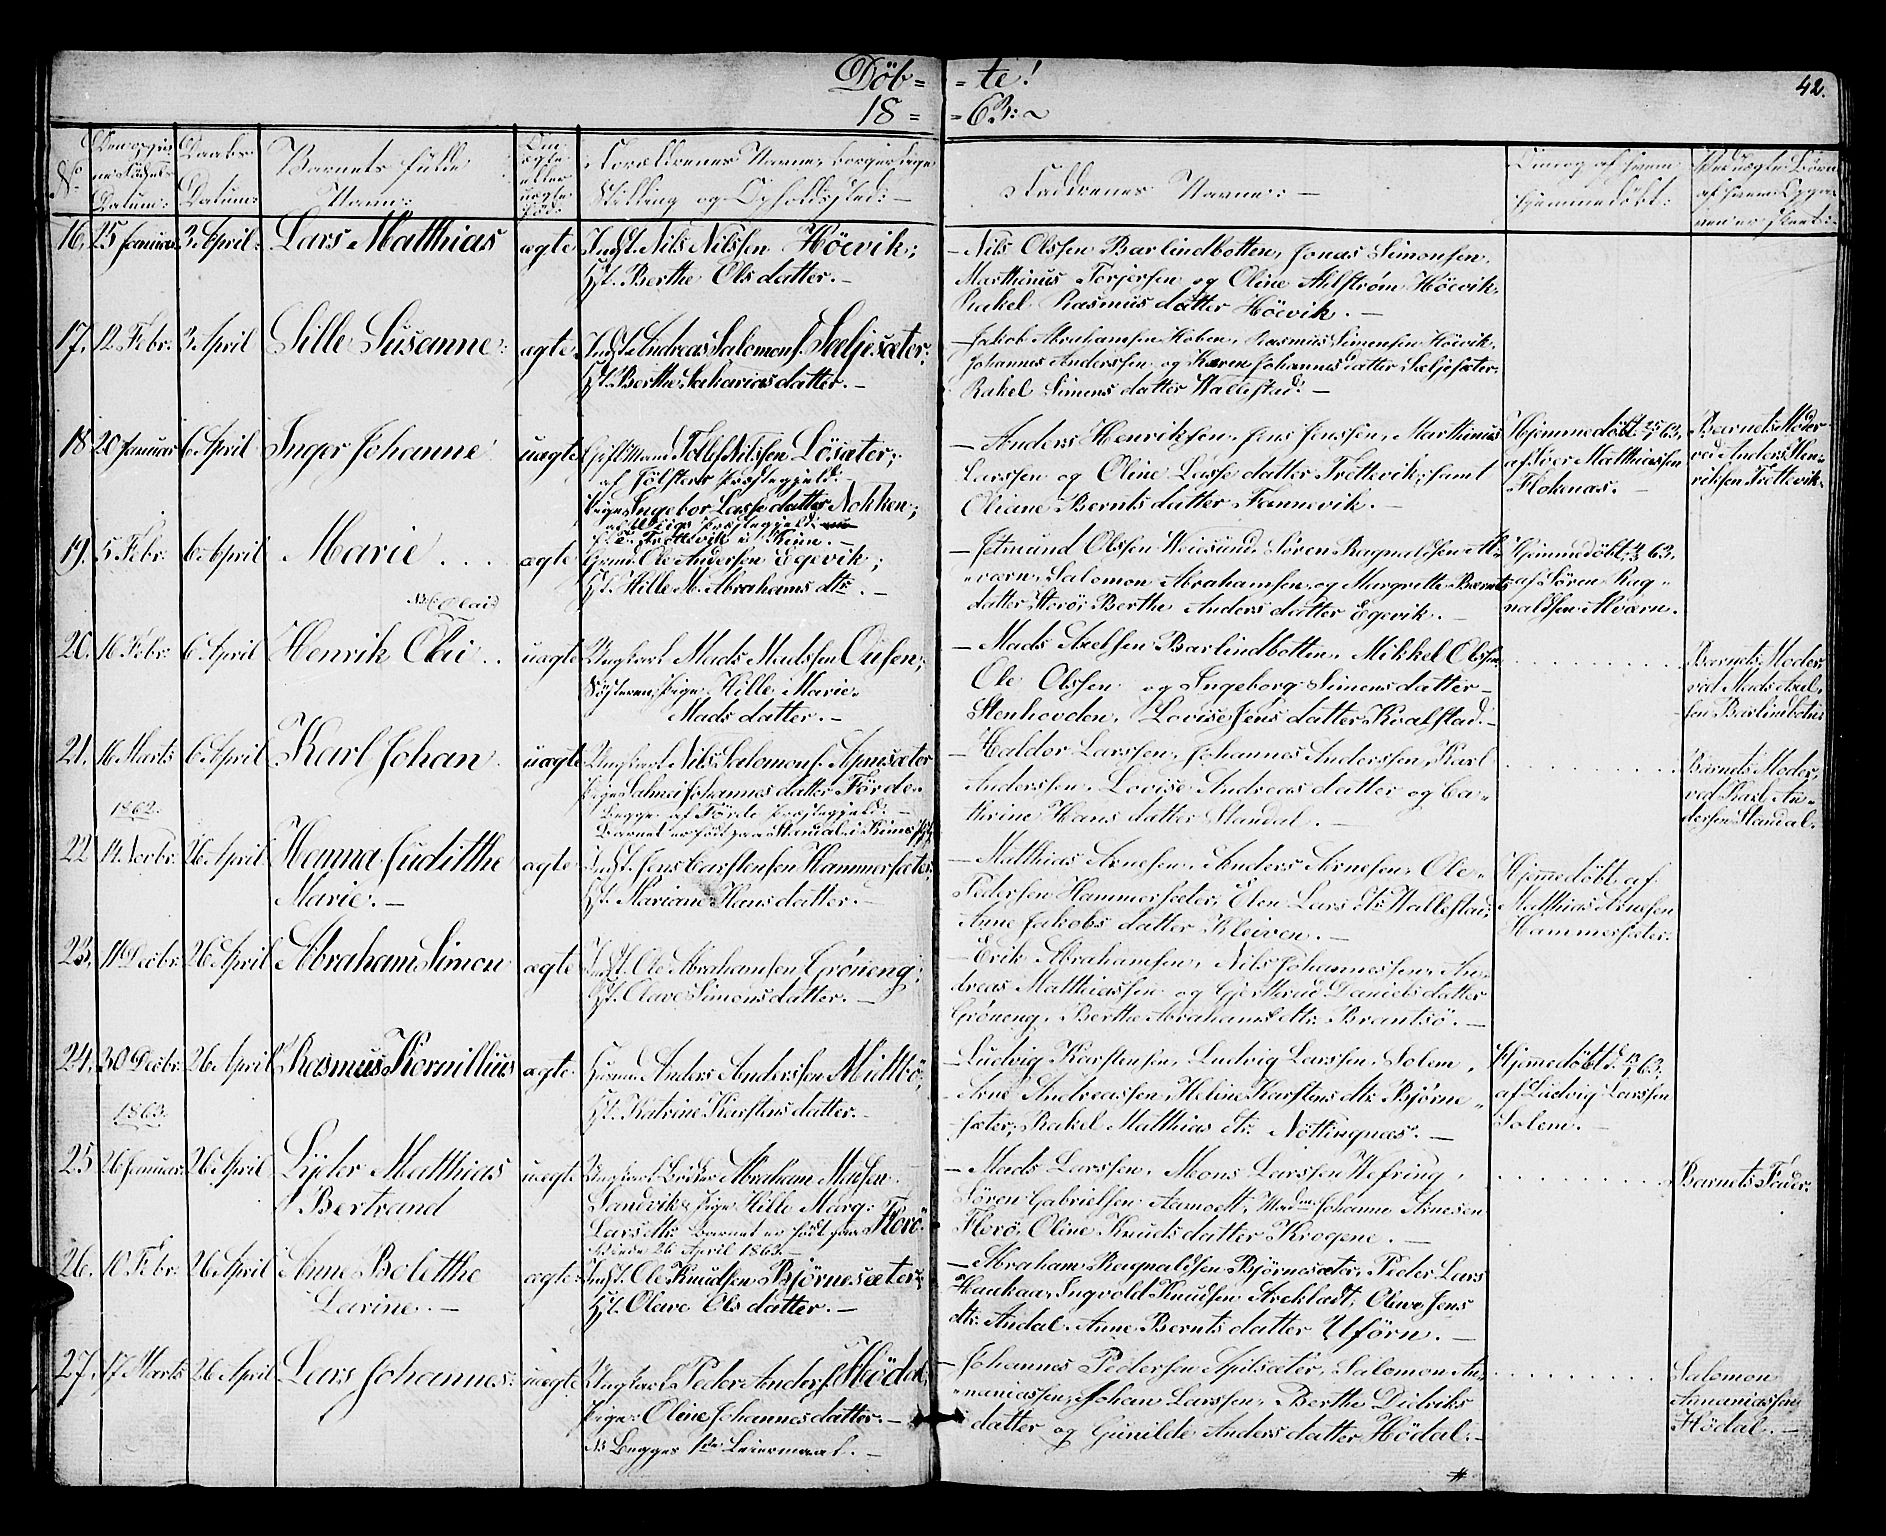 Döb= =te!
18= =63:~
42.
No
Datum:
Daabs Datum:
Barnets fulde Navn:
ægte eller uægte
Forældrenes Navne, borgerlige Stilling og Opholdssted:
Faddrenes Navne:
hjemmedøbt:
16. 25 Januar 3 April Lars Matthias ægte
Indst. Nils Nilssen Höevik;
Berthe Olsdatter.
Nils Olssen Barlindbotten, Jonas Simonsen,
Marthinus Torjersen og Oline Ahlstrøm Höevik,
Rakel Rasmusdatter Höevik.
17. 12 Febr. 3 April Sille Susanne ægte
Andreas Salomons. Sæljesæter.
Berthe Sakariasdatter.
Jakob Abrahamsen Hoben, Rasmus Simensen Höevik.
Johannes Anderssen og Karen Johannesdatter Sæljesæter.
Rakel Simensdatter Wallestad.
18 20 Januar 6 April Inger Johanne uægte
Gift Mand Tollef Nilssen Lösæter;
af Jölster Præstegjeld.
Pige Ingebor Lassedatter Nokken;
Anders Henriksen, Jens Jenssen, Marthinus
Larssen og Oline Lassedatter Trettevik; samt
Oliane Berntsdatter Fannevik.
Hjemmedöbt 25/1 63,
af Iver Matthiassen
Flokenæs.
Barnets Moder
ved Anders Hen=
riksen Trettevik
19. 5 Febr. 6 April Marie . . . ægte
Ole Andersen Egevik;
Hille M. Abrahamsdtr.
Jetmund Olssen Weiesund, Sören Ragnaldsen Al=
=værn, Salomon Abrahamsen og Margrette Bernts
datter Storö; Berthe Andersdatter Egevik.
Hjemmedöbt 63.
af Sören Rag=
naldsen Alværn.
NB (Olai)
20. 16 Febr. 6 April Henrik Olai . . uægte
Ungkarl Mads Madssen Ousen,
Pige Hille Marie
Madsdatter.
Mads Axelsen Barlindbotten, Mikkel Olssen
Ole Olssen og Ingeborg Simensdatter
Stenhovden, Lovise Jensdatter Kvalstad.
Barnets Moder,
ved Mads Axel,
sen Barlinbotten
21. 16 Marts 6 April Karl Johan uægte
Ungkarl Nils Salomons. Apnsæter
Pige Salmei Johannesdatter Förde
Begge af Förde Præstegjeld.
Barnet er födt paa Standal i Kins
Haldor Larssen, Johannes Anderssen, Karl
Anderssen, Lovise Andreasdatter og Ca=
thrine Hansdatter Standal.
Barnets Moder,
ved Karl An=
dersen Standal.
1862.
22 14 Novbr. 26 April Hanna Judithe
Marie. ægte
Jens Carstensen Hammersæter;
Mariane Hansdatter.
Matthias Arnesen, Anders Arnesen, Ole
Pedersen Hammersæter, Elen Larsdtr. Wallestad;
Anne Jakobsdatter Kleiven.
Hjemmedöbt af
Matthias Arnesen
Hammersæter.
23. 11 Decbr. 26 April Abraham Simon ægte
Ole Abrahamsen Gröneng;
Olave Simonsdatter.
Erik Abrahamsen, Nils Johannessen, An=
dreas Matthiassen og Gjerthrud Danielsdatter
Gröneng, Berthe Abrahamsdtr. Brantsö.
24. 30 Decbr. 26 April Rasmus Kornillius ægte
Anders Anderssen Midtbö,
Katrine Karstensdatter.
Ludvig Karstensen, Ludvig Larssen Solem,
Arne Andreassen, Heline Karstensdtr. Björne=
sæter; Rakel Matthiasdtr. Nöttingnæs.
Hjemmedöbt 13/1 63.
af Ludvig Larssen
Solem.
1863.
25 26 Januar. 26 April Lyder Matthias
Bertrand uægte
Abraham
Sandvik & Pige Hille Marg:
Larsdtr. Barnet er födt paa Florö
26 April 1863.
Mads Larssen, Mons Larssen Hefring,
Sören Gabrielsen Aamoett, Johanne Arnesen
Florö, Oline Knudsdatter Krogene.
Barnets Fader.
26. 10 Febr. 26 April Anne Bolethe
Lavine. ægte
Ole Knudsen Björnesæter;
Olave Olsdatter.
Abraham Ragnaldsen Björnesæter, Peder Lars
Haukaa, Ingvold Knudsen Areklædt, Olave Jens
dtr. Andal. Anne Berntsdatter Uförn.
27. 17 Marts 26 April Lars Johannes: uægte
Ungkarl Peder Anders. Hödal,
Pige Oline Johannesdatter.
NB Begges 1ste Leiermaal.
Johannes Pedersen Apilsæter, Salomon An=
=naniassen, Johan Larssen, Berthe Didriks
datter og Gunilde Andersdatter Hödal.
Salomon
Annaniassen
Hödal.